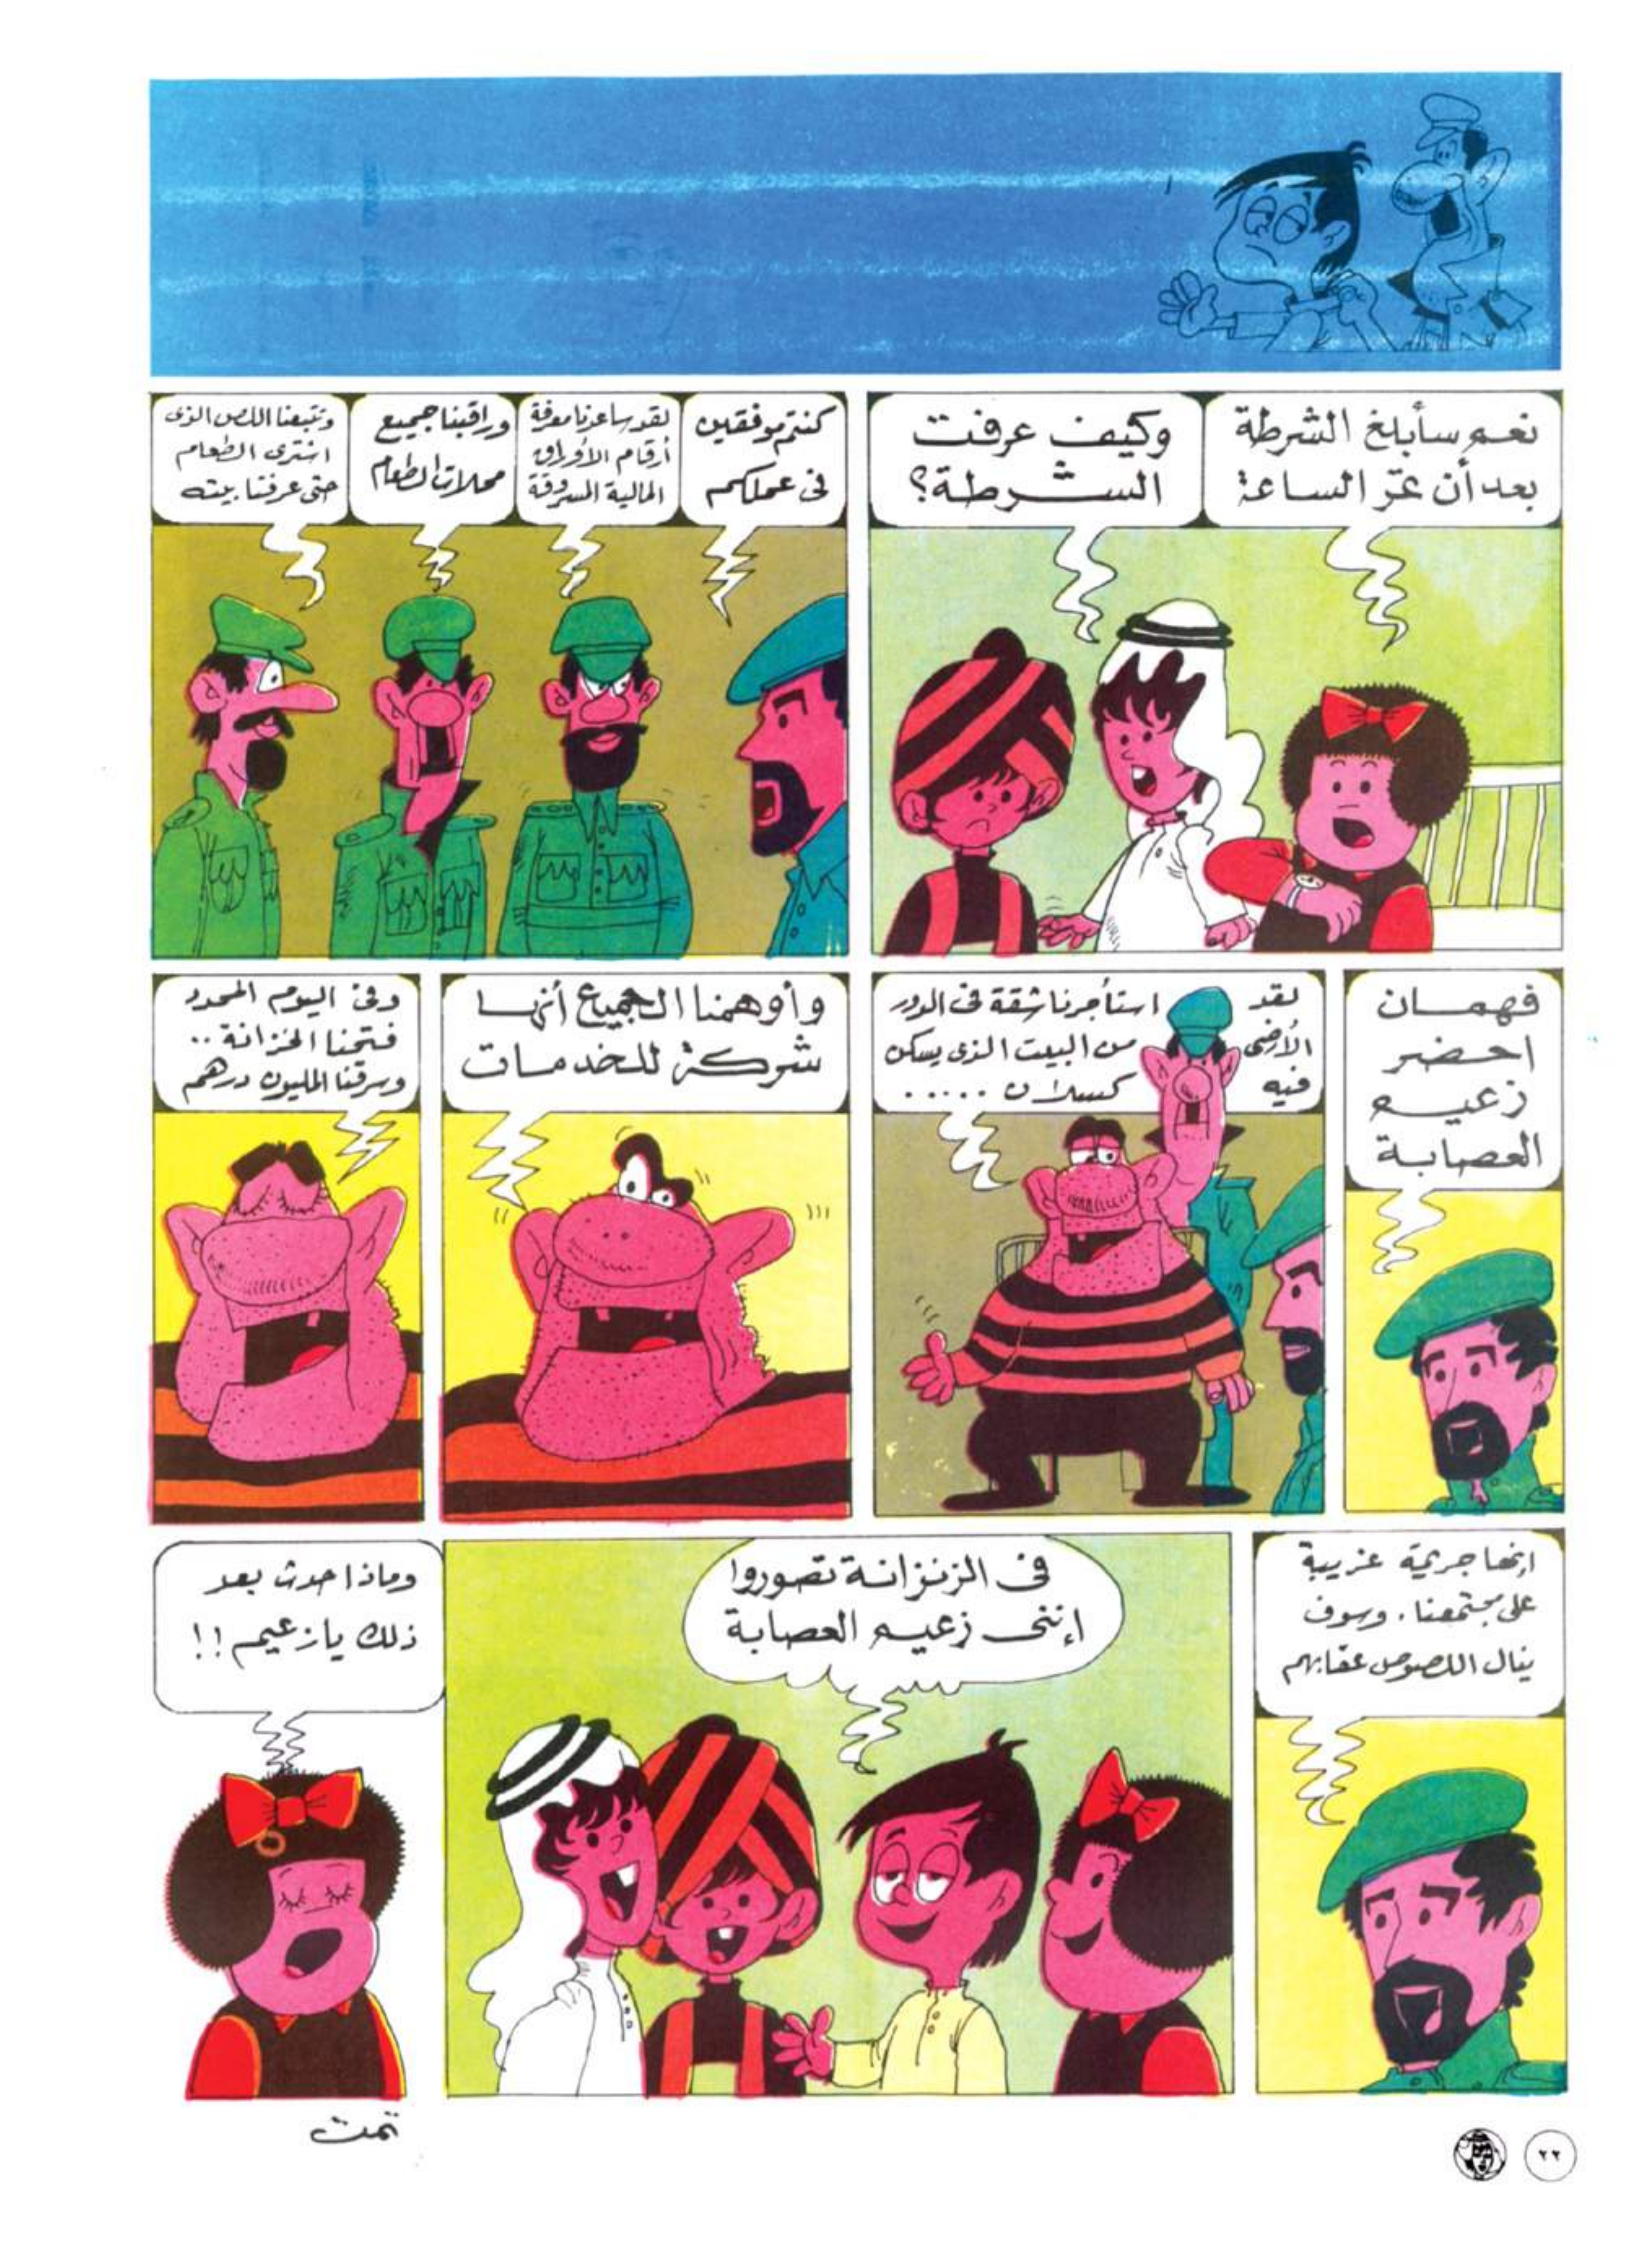 نعم سأبلغ الشرطة
بعد أن عثر الساعة
وكيف عرفت
الشرطة؟
كنتم موفقين
في عملكم
لقد ساعدنا معرفة
أرقام الأوراق
المالية المسروقة
وراقبنا جميع
محلات الطعام
وتتبعنا اللص الذى
اشترى الطعام
حتى عرفنا بيته
فهمان
احضر
زعيم
العصابة
لقد استأجرنا شقة فى الدور
الأرضى من البيت الذى يسكن
فيه كسلان .....
وأوهمنا الجميع أنها
شركة للخدمات
وفى اليوم المحدد
فتحنا الخزانة ..
وسرقنا المليون درهم
إنها جريمة غريبة
على مجتمعنا . وسوف
ينال اللصوص عقابهم
فى الزنزانة تصوروا
إننى زعيم العصابة
وماذا حدث بعد
ذلك يا زعيم !!
تمت
٢٢